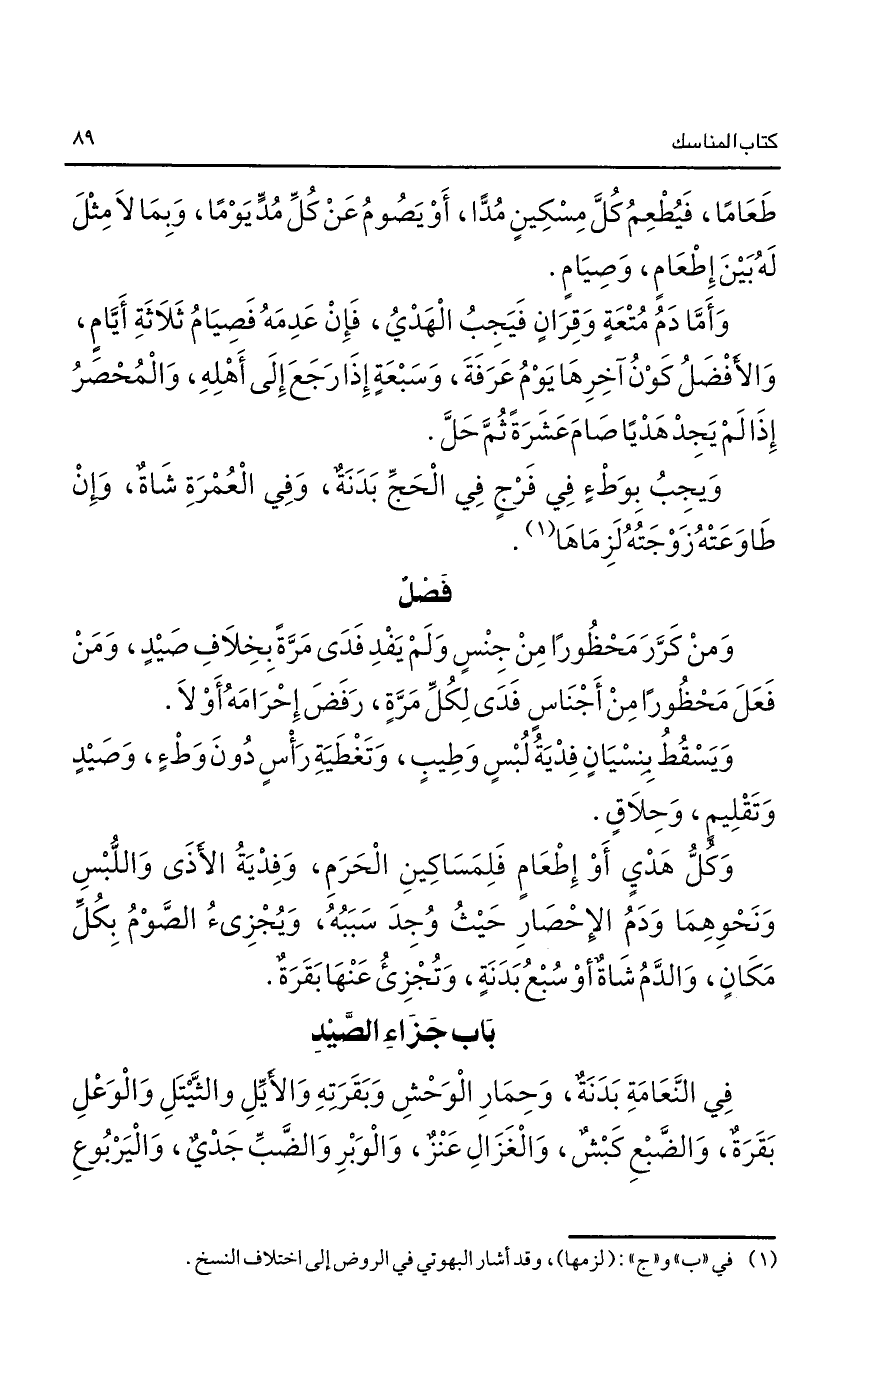 كتاب المناسك ٨٩
طَعَامًا، فَيُطْعِمُ كُلَّ مِسْكِينٍ مُدًّا، أَوْ يَصُومُ عَنْ كُلِّ مُدٍّ يَوْمًا، وَبِمَا لاَ مِثْلَ
لَهُ بَيْنَ إِطْعَامٍ، وَصِيَامٍ.
وَأَمَّا دَمُ مُتْعَةٍ وَقِرَانٍ فَيَجِبُ الْهَدْيُ، فَإِنْ عَدِمَهُ فَصِيَامُ ثَلَاثَةِ أَيَّامٍ،
وَالأَفْضَلُ كَوْنُ آخِرِهَا يَوْمُ عَرَفَةَ، وَسَبْعَةٍ إِذَا رَجَعَ إِلَى أَهْلِهِ، وَالْمُحْصَرُ
إِذَا لَمْ يَجِدْ هَدْيًا صَامَ عَشَرَةً ثُمَّ حَلَّ.
وَيَجِبُ بِوَطْءٍ فِي فَرْجٍ فِي الْحَجِّ بَدَنَةٌ، وَفِي الْعُمْرَةِ شَاةٌ، وَإِنْ
طَاوَعَتْهُ زَوْجَتُهُ لَزِمَاهَا(١).
فَصْلٌ
وَمَنْ كَرَّرَ مَحْظُورًا مِنْ جِنْسٍ وَلَمْ يَفْدِ فَدَى مَرَّةً بِخِلَافِ صَيْدٍ، وَمَنْ
فَعَلَ مَحْظُورًا مِنْ أَجْنَاسٍ فَدَى لِكُلِّ مَرَّةٍ، رَفَضَ إِحْرَامَهُ أَوْ لاَ.
وَيَسْقُطُ بِنِسْيَانٍ فِدْيَةُ لُبْسٍ وَطِيبٍ، وَتَغْطَيَةِ رَأْسٍ دُونَ وَطْءٍ، وَصَيْدٍ
وَتَقْلِيمٍ، وَحِلَاقٍ.
وَكُلُّ هَدْيٍ أَوْ إِطْعَامٍ فَلِمَسَاكِينِ الْحَرَمِ، وَفِدْيَةُ الأَذَى وَاللُّبْسِ
وَنَحْوِهِمَا وَدَمُ الإِحْصَارِ حَيْثُ وُجِدَ سَبَبُهُ، وَيُجْزِىءُ الصَّوْمُ بِكُلِّ
مَكَانٍ، وَالدَّمُ شَاةٌ أَوْ سُبْعُ بَدَنَةٍ، وَتُجْزِئُ عَنْهَا بَقَرَةٌ.
بَاب جَزَاءِ الصَّيْدِ
فِي النَّعَامَةِ بَدَنَةٌ، وَحِمَارِ الْوَحْشِ وَبَقَرَتِهِ وَالأَيِّلِ والثَّيْتَلِ وَالْوَعْلِ
بَقَرَةٌ، وَالضَّبْعِ كَبْشٌ، وَالْغَزَالِ عَنْزٌ، وَالْوَبْرِ وَالضَّبِّ جَدْيٌ، وَالْيَرْبُوعِ
(١) في «ب» و«ج»: (لزمها)، وقد أشار البهوتي في الروض إلى اختلاف النسخ.